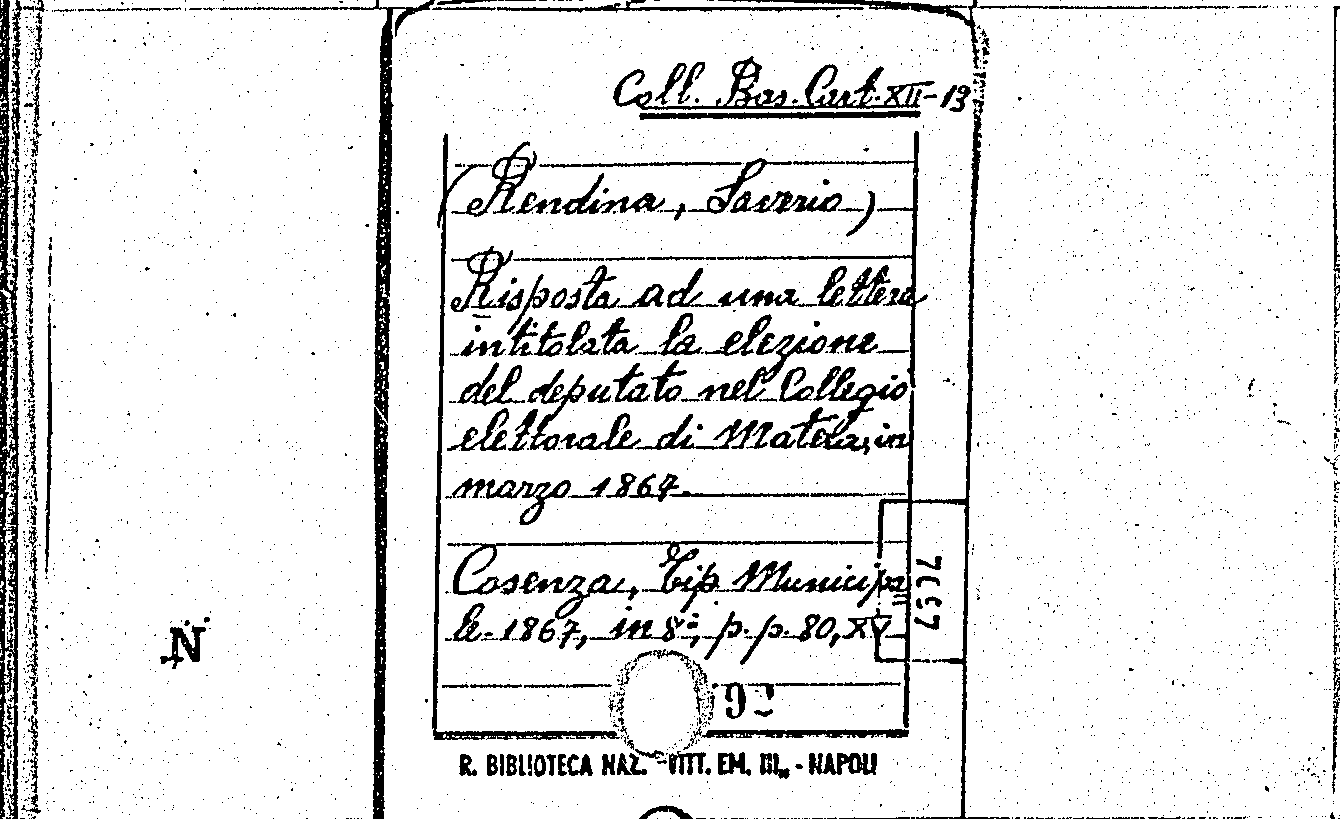 Coll. Bas. Cart. XII-13
(Rendina, Saverio)
Risposta ad una lettera
intitolata la elezione
del deputato nel Collegio
elettorale di Matera, in
marzo 1867.
Cosenza, Tip. Municipa
le. 1867, in 8º, p.p. 80, XV
92
R. BIBLIOTECA NAZ. "VITT. EM. III„ - NAPOLI
N